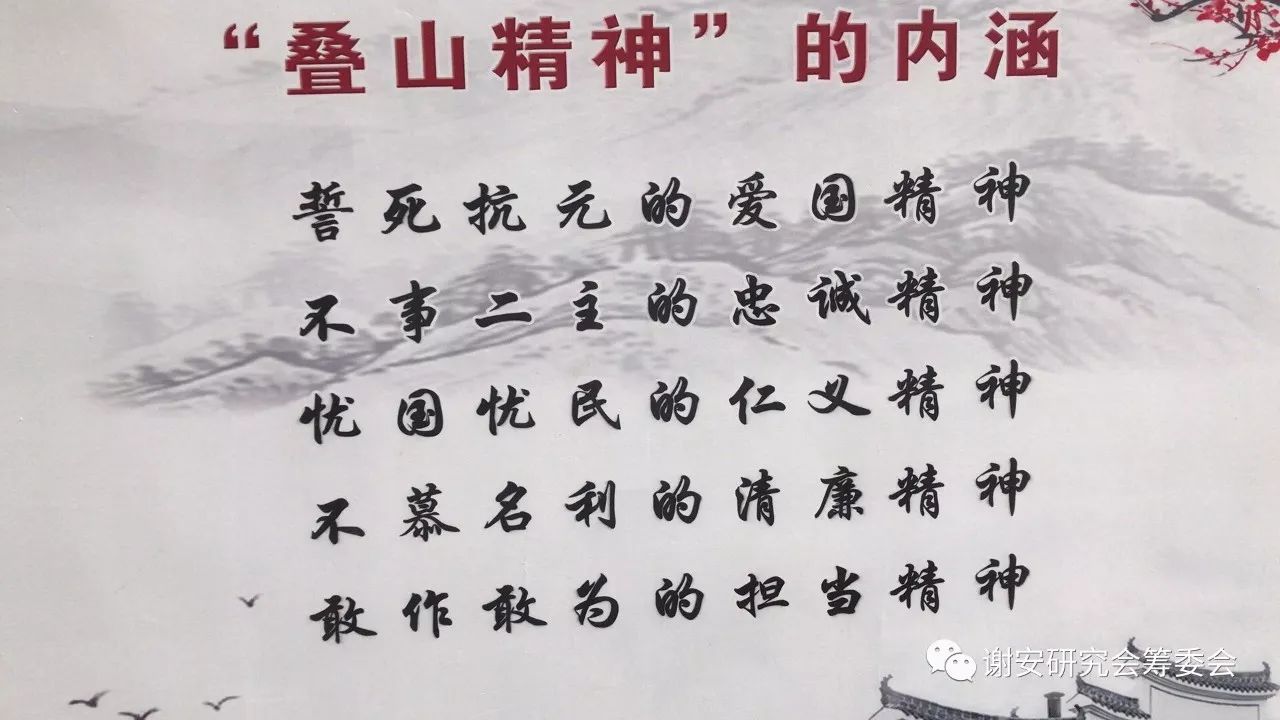 “叠山精神”的内涵
誓死抗元的爱国精神
不事二主的忠诚精神
忧国忧民的仁义精神
不慕名利的清廉精神
敢作敢为的担当精神
谢安研究会筹委会